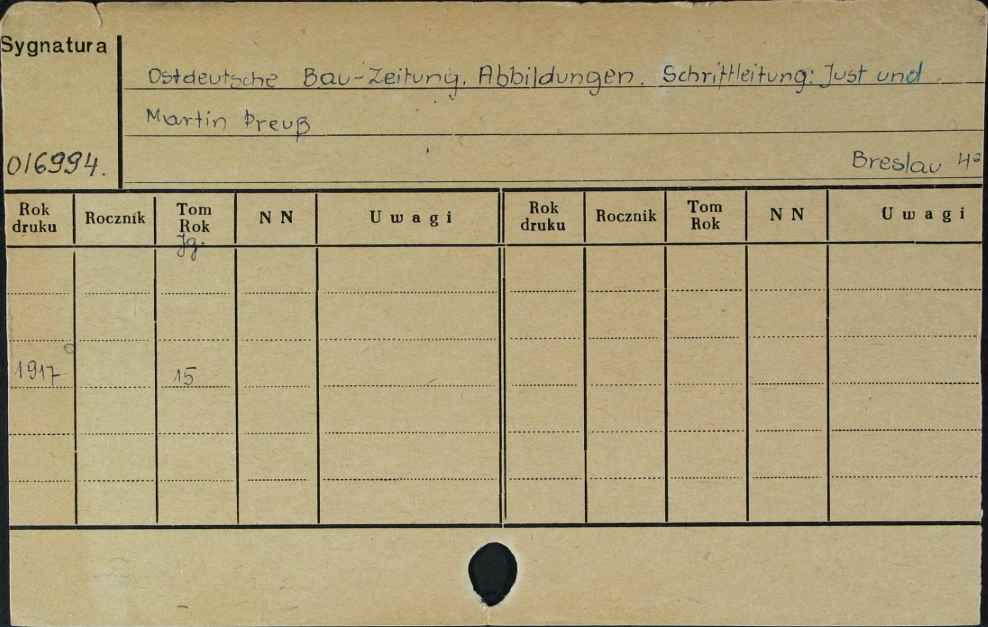 Sygnatura
Ostdeutsche Bau-Zeitung. Abbildungen. Schriftleitung: Just und
Martin Preuß
016994.
Breslau 4°
Rok druku Rocznik Tom Rok N N Uwagi Rok druku Rocznik Tom Rok N N Uwagi
Jg.
1917 15